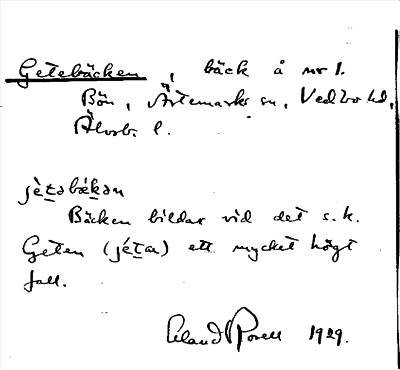 Getebäcken, bäck å nr 1.
Bön, Ärtemarks sn, Vedbo hd,
Älvsb. l.
jètəbäkən
Bäcken bildar vid det s.k.
Geten (jétən) ett mycket högt
fall.
Erland Rosell 1929.